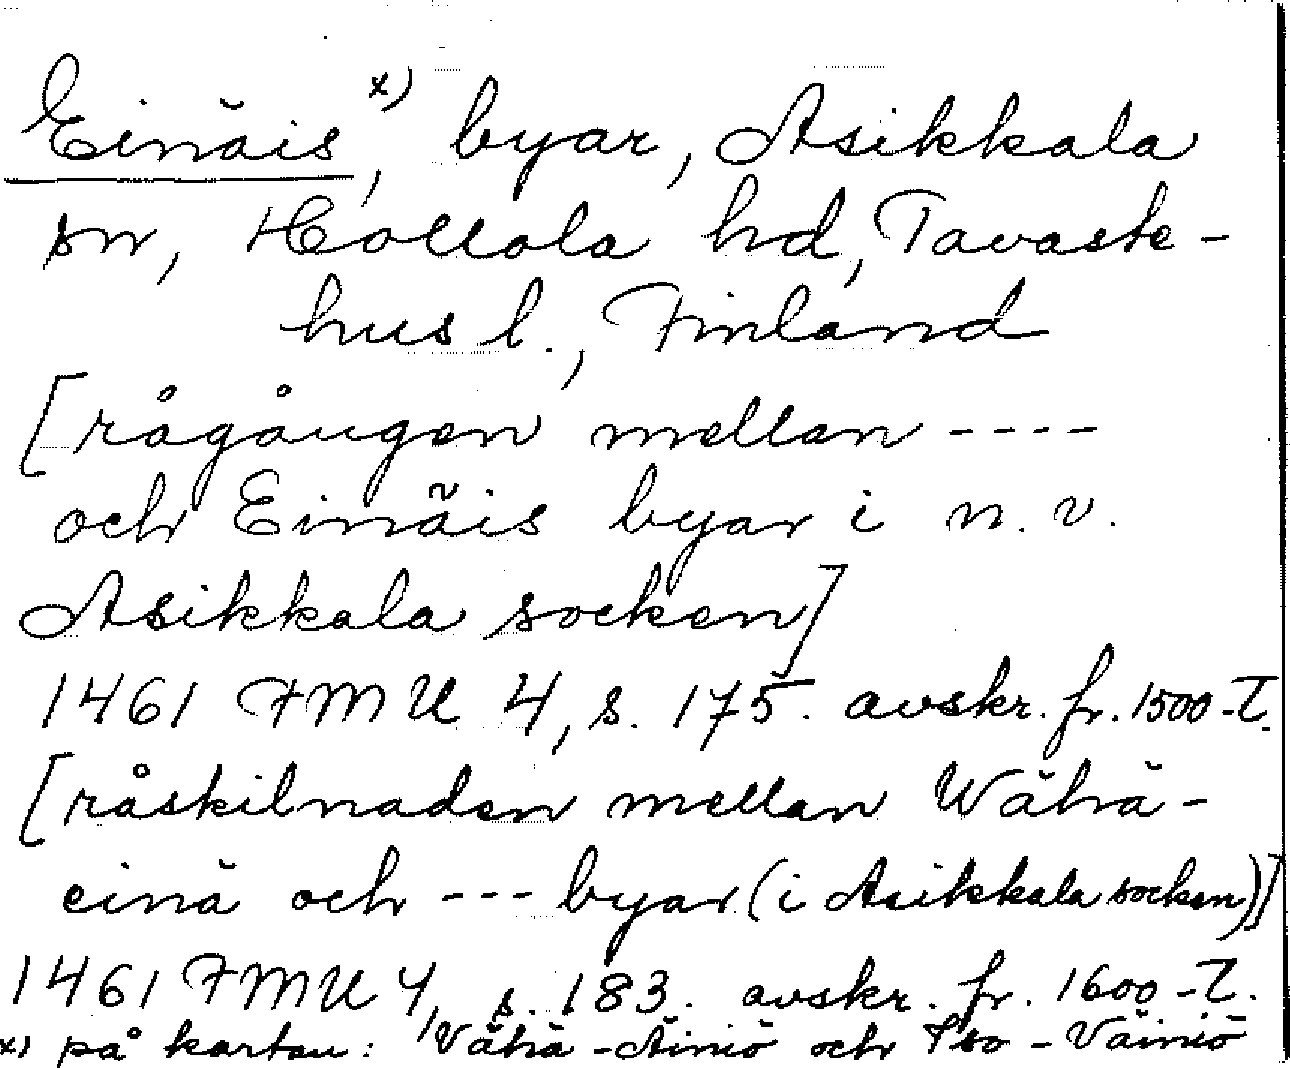 Einäis x), byar, Asikkala
sn, Hollola hd, Tavaste-
hus l., Finland
[rågången mellan ----
och Einäis byar i n.v.
Asikkala socken]
1461 FMU 4, s. 175. avskr. fr. 1500-T.
[råskilnaden mellan Wähä-
einä och --- byar (i Asikkala socken)]
1461 FMU 4, s. 183. avskr. fr. 1600-T.
x) på kartan: Vähä-Äiniö och Iso-Väiniö